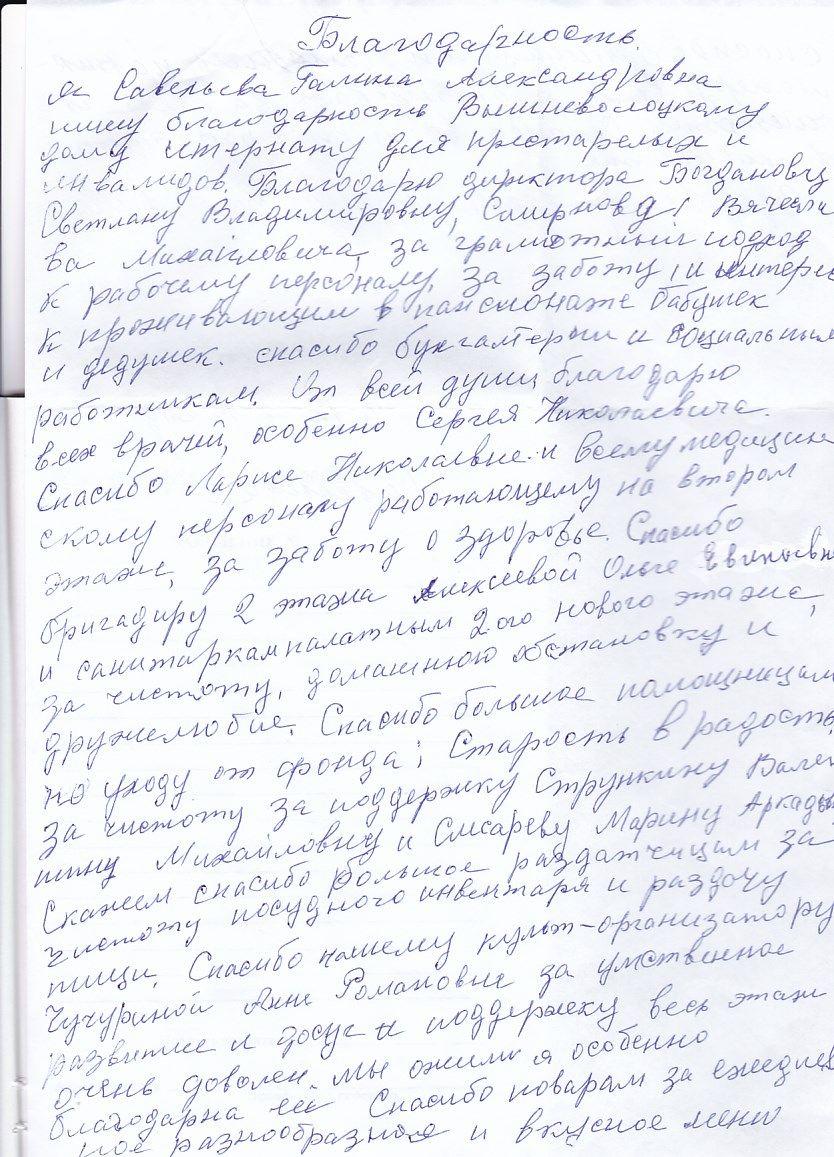 Благодарность.
Я Савельева Галина Александровна
пишу благодарность Вышневолоцкому
дому итернату для престарелых и
инвалидов. Благодарю директора Богданович
Светлану Владимировну, Смирнова Вячесла
ва Михайловича, за грамотный подход
к рабочему персоналу, за заботу, и интерес
к проживающим в пансионаже бабушек
и дедушек. спасибо бухгалтерии и социальным
работникам. От всей души благодарю
всех врачей, особенно Сергея Николаевича.
Спасибо Ларисе Николаевне и всему медицин
скому персоналу работающему на втором
этаже, за заботу о здоровье. Спасибо
бригадиру 2 этажа Алексеевой Ольге Евгеньевне
и санитаркам палатным 2ого нового этажа,
за чистоту, домашнюю обстановку и
дружелюбие. Спасибо большое помощницам
по уходу от фонда; Старость в радость
за чистоту за поддержку Стрункину Вален
тину Михайловну и Слесареву Марину Аркадьевну
Скажем спасибо большое раздатчицам за
чистоту посудного инвентаря и раздачу
пищи. Спасибо нашему культ-организатору
Чучуриной Анне Романовне за умственное
развитие и досуг и поддержку весь этаж
очень доволен. Мы ожили я особенно
благодарна ей Спасибо поварам за ежеднев
ное разнообразное и вкусное меню